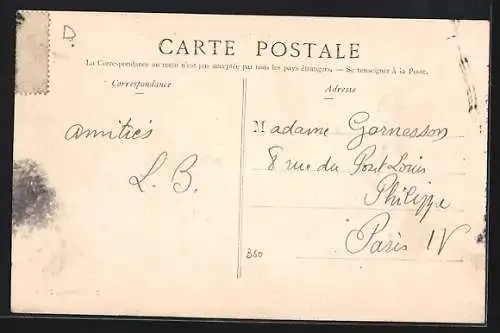 D
CARTE POSTALE
La Correspondance au recto n'est pas acceptée par tous les pays étrangers. — Se renseigner à la Poste.
Correspondance
Adresse
amitiés
L. B.
Madame Garnesson
8 rue du Pont Louis
Philippe
Paris IV
B50